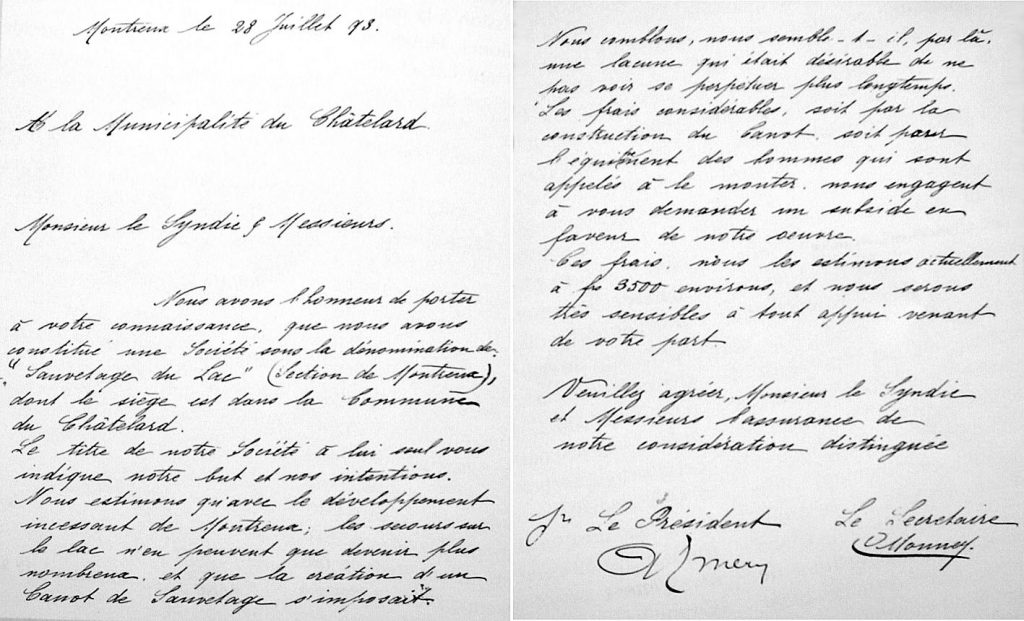 Montreux le 28 Juillet 93.
A la Municipalité du Châtelard.
Monsieur le Syndic & Messieurs.
Nous avons l'honneur de porter
à votre connaissance, que nous avons
constitué une Société sous la dénomination de
"Sauvetage du Lac" (Section de Montreux),
dont le siège est dans la Commune
du Châtelard.
Le titre de notre Société à lui seul vous
indique notre but et nos intentions.
Nous estimons qu'avec le développement
incessant de Montreux; les secours sur
le lac n'en peuvent que devenir plus
nombreux, et que la création d'un
Canot de Sauvetage s'imposait.
Nous comblons, nous semble-t-il, par là,
une lacune qui était désirable de ne
pas voir se perpétuer plus longtemps.
Les frais considérables, soit par la
construction du Canot, soit par
l'équipement des hommes qui sont
appelés à le monter, nous engagent
à vous demander un subside en
faveur de notre oeuvre.
Ces frais, nous les estimons actuellement
à frs 3500 environs, et nous serons
très sensibles à tout appui venant
de votre part.
Veuillez agréer, Monsieur le Syndic
et Messieurs l'assurance de
notre considération distinguée
Le Président
Le Secretaire